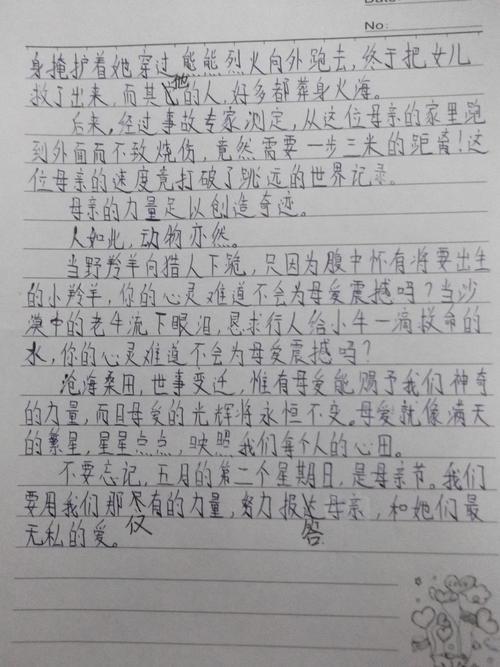 Date:
No:
身掩护着她穿过熊熊烈火向外跑去，终于把女儿
救了出来，而其他的人，好多都葬身火海。
后来，经过事故专家测定，从这位母亲的家里跑
到外面而不致烧伤，竟然需要一步三米的距离！这
位母亲的速度竟打破了跳远的世界记录。
母亲的力量足以创造奇迹。
人如此，动物亦然。
当野羚羊向猎人下跪，只因为腹中怀有将要出生
的小羚羊，你的心灵难道不会为母爱震撼吗？当沙
漠中的老牛流下眼泪，恳求行人给小牛一滴救命的
水，你的心灵难道不会为母爱震撼吗？
沧海桑田，世事变迁，惟有母爱能赐予我们神奇
的力量，而且母爱的光辉将永恒不变。母爱就像满天
的繁星，星星点点，映照我们每个人的心田。
不要忘记，五月的第二个星期日，是母亲节。我们
要用我们那仅有的力量，努力报答母亲，和她们最
无私的爱。